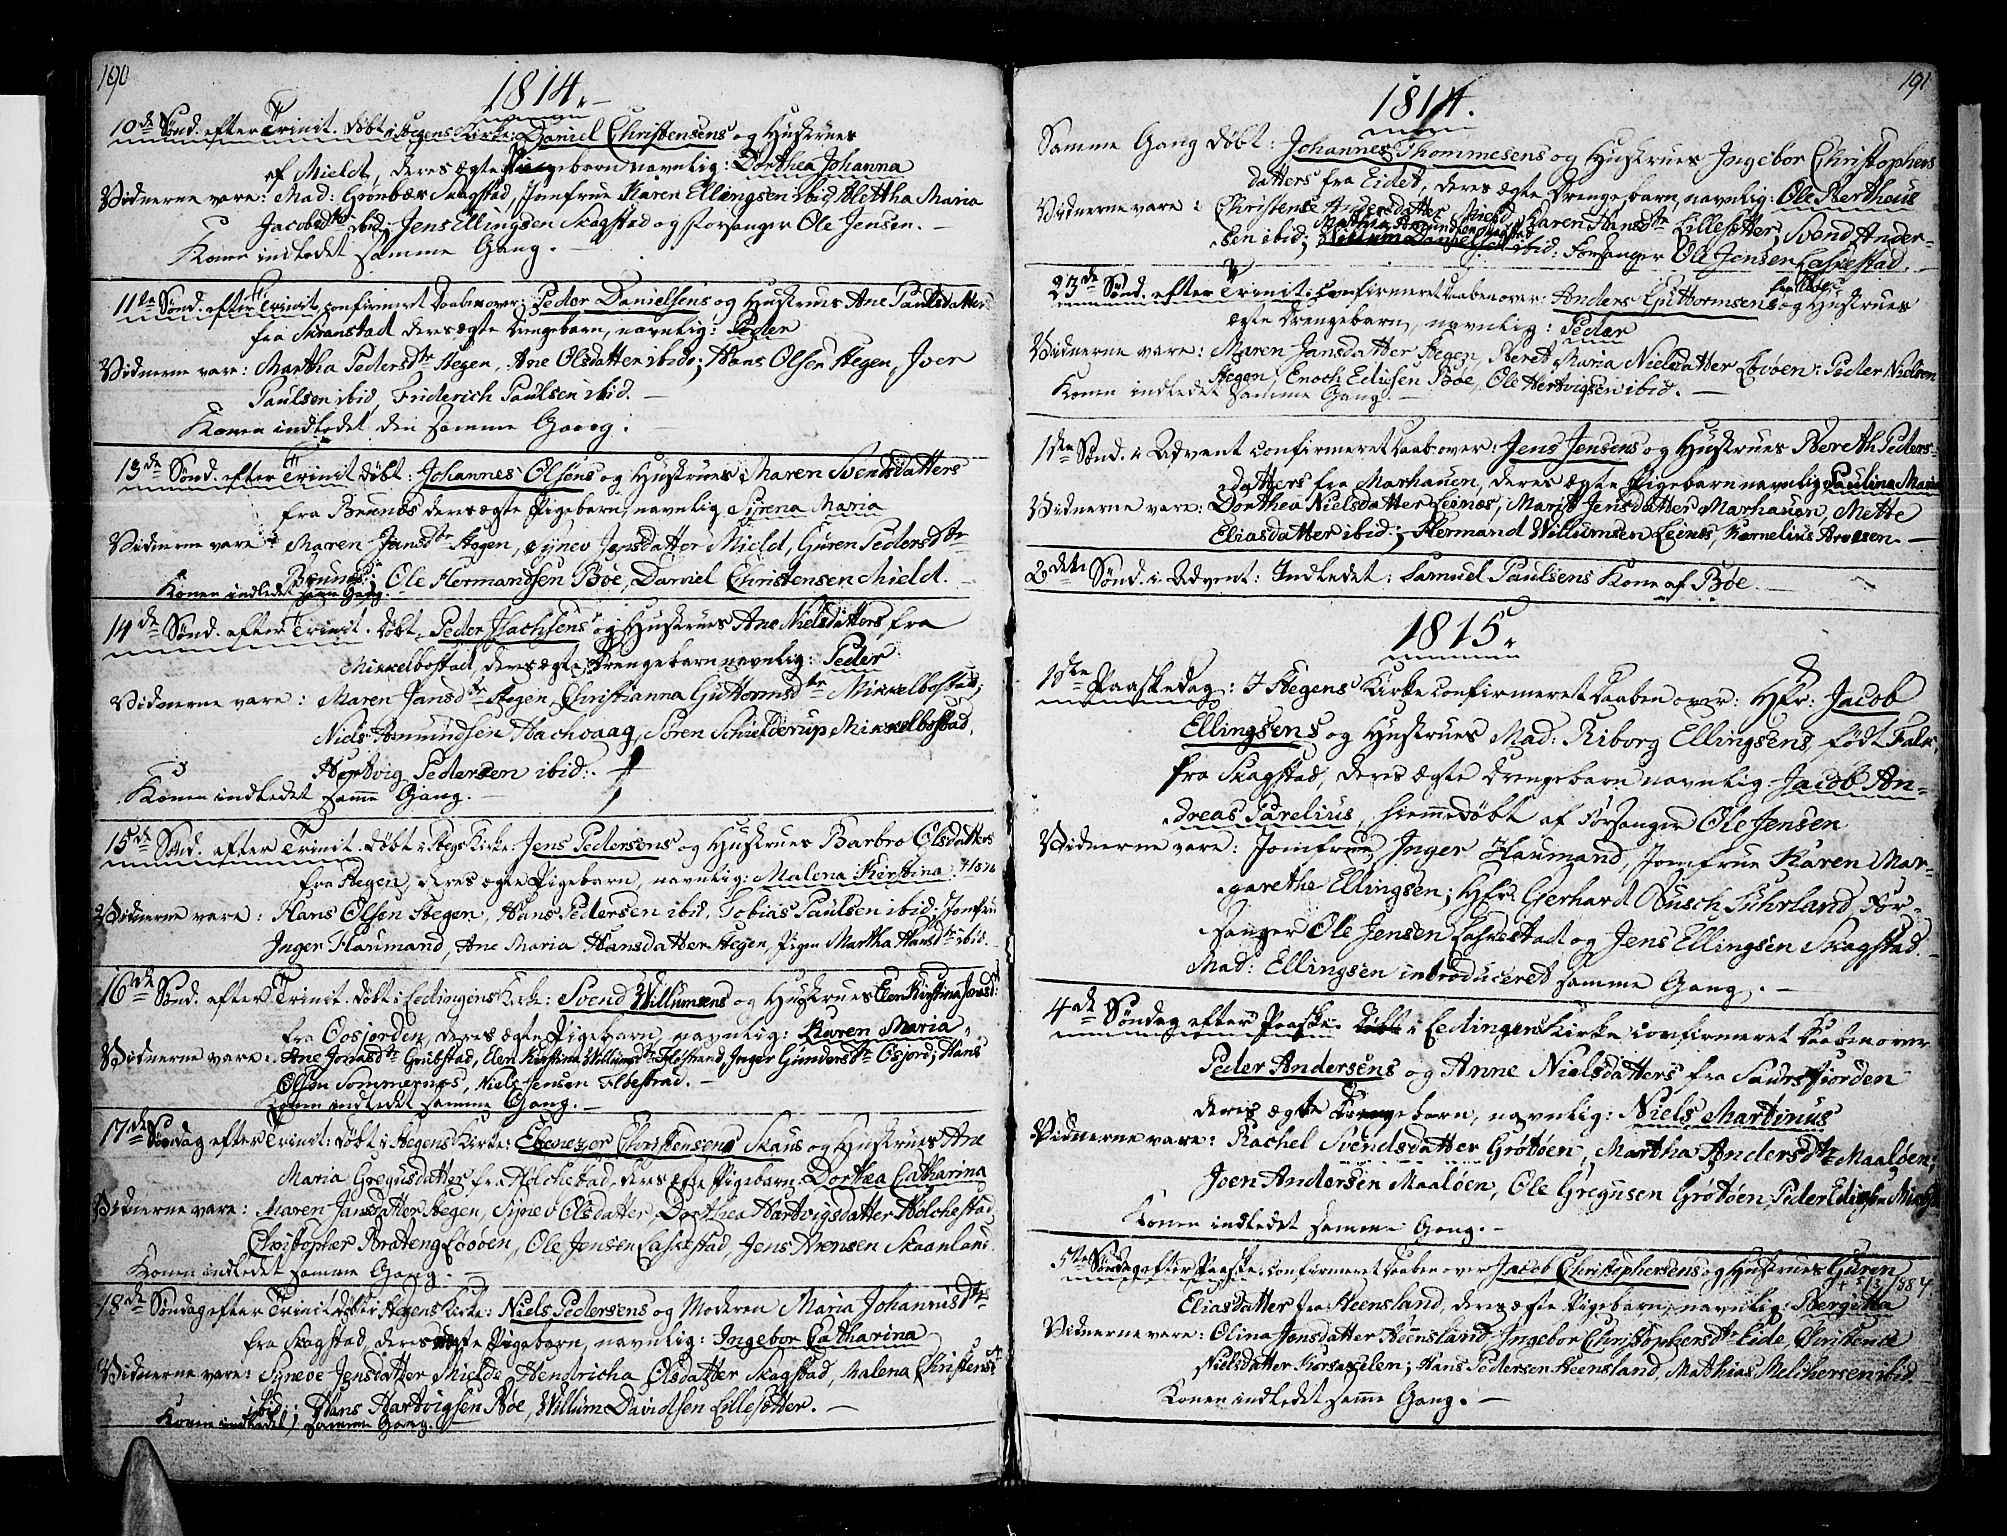 190
1814.
10de Sönd. efter Trinit. döbt i Stegens Kirke: Daniel Christensens og Hustrues
af Mield, deres ægte Pigebarn navnlig: Dorthea Johanna
Vidnerne vare: Mad: Grönbæk Skagstad, Jomfrue Karen Ellingsen ibid, Aletha Maria
Jacobsdtr ibid; Jens Ellingsen Skagstad og Forsanger Ole Jensen. —
Konen indledet samme Gang. —
11te Sönd. efter Trinit. confirmeret Daaben over: Peder Danielsens og Hustrues Ane Paulsdatters
fra Skranstad deres ægte Drengebarn, navnlig: Peder
Vidnerne vare: Martha Pedersdtr Stegen, Ane Olsdatter ibid; Hans Olsen Stegen, Iver
Paulsen ibid, Friderich Paulsen ibid. —
Konen indledet den samme Gang. —
13de Sönd. efter Trinit. döbt: Johannes Olsens og Hustrues Maren Svendsdatters
fra Brunes deres ægte Pigebarn, navnlig Sirena Maria
Vidnerne vare: Maren Jansdtr Stegen, Synev Jensdatter Mield, Guren Pedersdtr
Brunes; Ole Hermandsen Böe, Daniel Christensen Mield.
Konen indledet samme Gang.
14de Sönd. efter Trinit. döbt Peder Isachsens og Hustrues Ane Nielsdatters fra
Mikkelbostad, deres ægte Drengebarn navnlig: Peder
Vidnerne vare: Maren Jansdtr Stegen, Christianna Guttormsdtr Mikkelbostad;
Niels Amundsen Hachvaag, Sören Schielderup Mikkelbostad,
Hertvig Pedersen ibid:.
Konen indledet samme Gang.
15de Sönd. efter Trinit. döbt i Stegs Kirke: Jens Pedersens og Hustrues Barbro Olsdatters
fra Stegen, deres ægte Pigebarn, navnlig: Malena Kirstina
Vidnerne vare: Hans Olsen Stegen, Hans Pedersen ibid, Tobias Paulsen ibid; Jomfru
Inger Haumand, Ane Maria Hansdatter Stegen, Pigen Martha Hansdtr ibid.
16de Sönd. efter Trinit. döbt i Ledingens Kirke: Svend Willumsens og Hustrues Elen Kirstina Jonsdtr
fra Oosjorden, deres ægte Pigebarn navnlig: Karen Maria
Vidnerne vare: Ane Jonasdtr Grubstad, Elen Kirstina Willumsdtr Flöestrand, Inger Gundersdtr Osjord; Hans
Olsen Sommernes, Niels Jensen Flöestrad. —
Konen indledet samme Gang. —
17de Söndag efter Trinit: döbt i Stegens Kirke: Ebenezer Christensens Skaus og Hustrues Ane
Maria Gregusdatter fra Holchestad, deres ægte Pigebarn. Dorthea Catharina
Vidnerne vare: Maren Jansdatter Stegen, Synev Olsdatter, Dorthea Hartvigsdatter Holchestad
Christopher Brateng Lövöen, Ole Jensen Laskestad, Jens Arensen Skaanland
Konen indledet samme Gang. —
18de Söndag efter Trinit. döbt i Stegens Kirke: Niels Pedersens og Moderen Maria Johannisdtr
fra Skagstad, deres uægte Pigebarn, navnlig: Ingebor Catharina
Vidnerne vare: Synöve Jensdatter Mielde, Hendricha Olsdatter Skagstad, Malena Christensd:
ibid; Hans Hartvigsen Böe, Willum Davidsen Lillesötter. —
Konen indledet samme Gang.
191
1814.
Samme Gang döbt: Johannes Thommesens og Hustrues Ingebor Christophers
datters fra Eidet, deres ægte Drengebarn, navnlig: Ole Bertheus
Vidnerne vare: Christense Andersdatter Mield, Karen Hansdtr Lillesötter, Svend Ander-
sen ibid; Mathias Amundsen ibid: Forsanger Ole Jensen Laskestad.
23de Sönd. efter Trinit. confirmeret Daaben over: Anders Guttormsens og Hustrues
ægte Drengebarn, navnlig: Peder
Vidnerne vare: Maren Jansdatter Stegen, Beret Maria Nielsdatter Lövöen: Peder Nielsen
Stegen, Enoch Ediisen Böe, Ole Hertvigsen ibid. —
Konen indledet samme Gang —
1ste Sönd. i Advent confirmeret Daab over: Jens Jensens og Hustrues Bereth Peders-
datters fra Marhauen, deres ægte Pigebarn navnlig Paulina Maria
Vidnerne vare: Dorthea Nielsdatter Leenes, Marit Jensdatter Marhauen, Mette
Eliasdatter ibid; Hermand Willumsen Leines, Kornelius Arvesen —
2den Sönd. i Advent: Indledet: Samuel Paulsens Kone af Böe.
1815.
1ste Paaskedag: I Stegens Kirke confirmeret Daaben over: Hfr: Jacob
Ellingsens og Hustrues Mad: Riborg Ellingsens, födt Falk,
fra Skagstad, deres ægte Drengebarn navnlig Jacob An-
dreas Parelius, hiemmedöbt af Forsanger Ole Jensen
Vidnerne vare: Jomfrue Inger Haumand, Jomfrue Karen Mar-
garethe Ellingsen; Hfr: Gerhardt Busch Suhrland, For-
sanger Ole Jensen Laskestad og Jens Ellingsen Skagstad. —
Mad: Ellingsen introduceret samme Gang. —
4de Söndag efter Paaske. i Ledingens Kirke confirmeret Daaben over
Peder Andersens og Anne Nielsdatters fra Saursfiorden
deres ægte Drengebarn, navnlig: Niels Martinus
Vidnerne vare: Rachel Svendsdatter Grötöen, Martha Andersdtr Maalöen;
Joen Andersen Maalöen, Ole Gregusen Grötöen, Peder
Konen indledet samme Gang. —
5te Söndag efter Paaske. confirmeret Daaben over Jacob Christophersens og Hustrues Guren
Eliasdatter fra Heensland, deres ægte Pigebarn, navnlig: Bergitta
Vidnerne vare: Olina Jonsdatter Heensland, Ingebor Christophersdtr Eide, Christence
Nielsdatter Korsaxelen; Hans Pedersen Heensland, Mathias Melchersen ibid
Konen indledet samme Gang. —